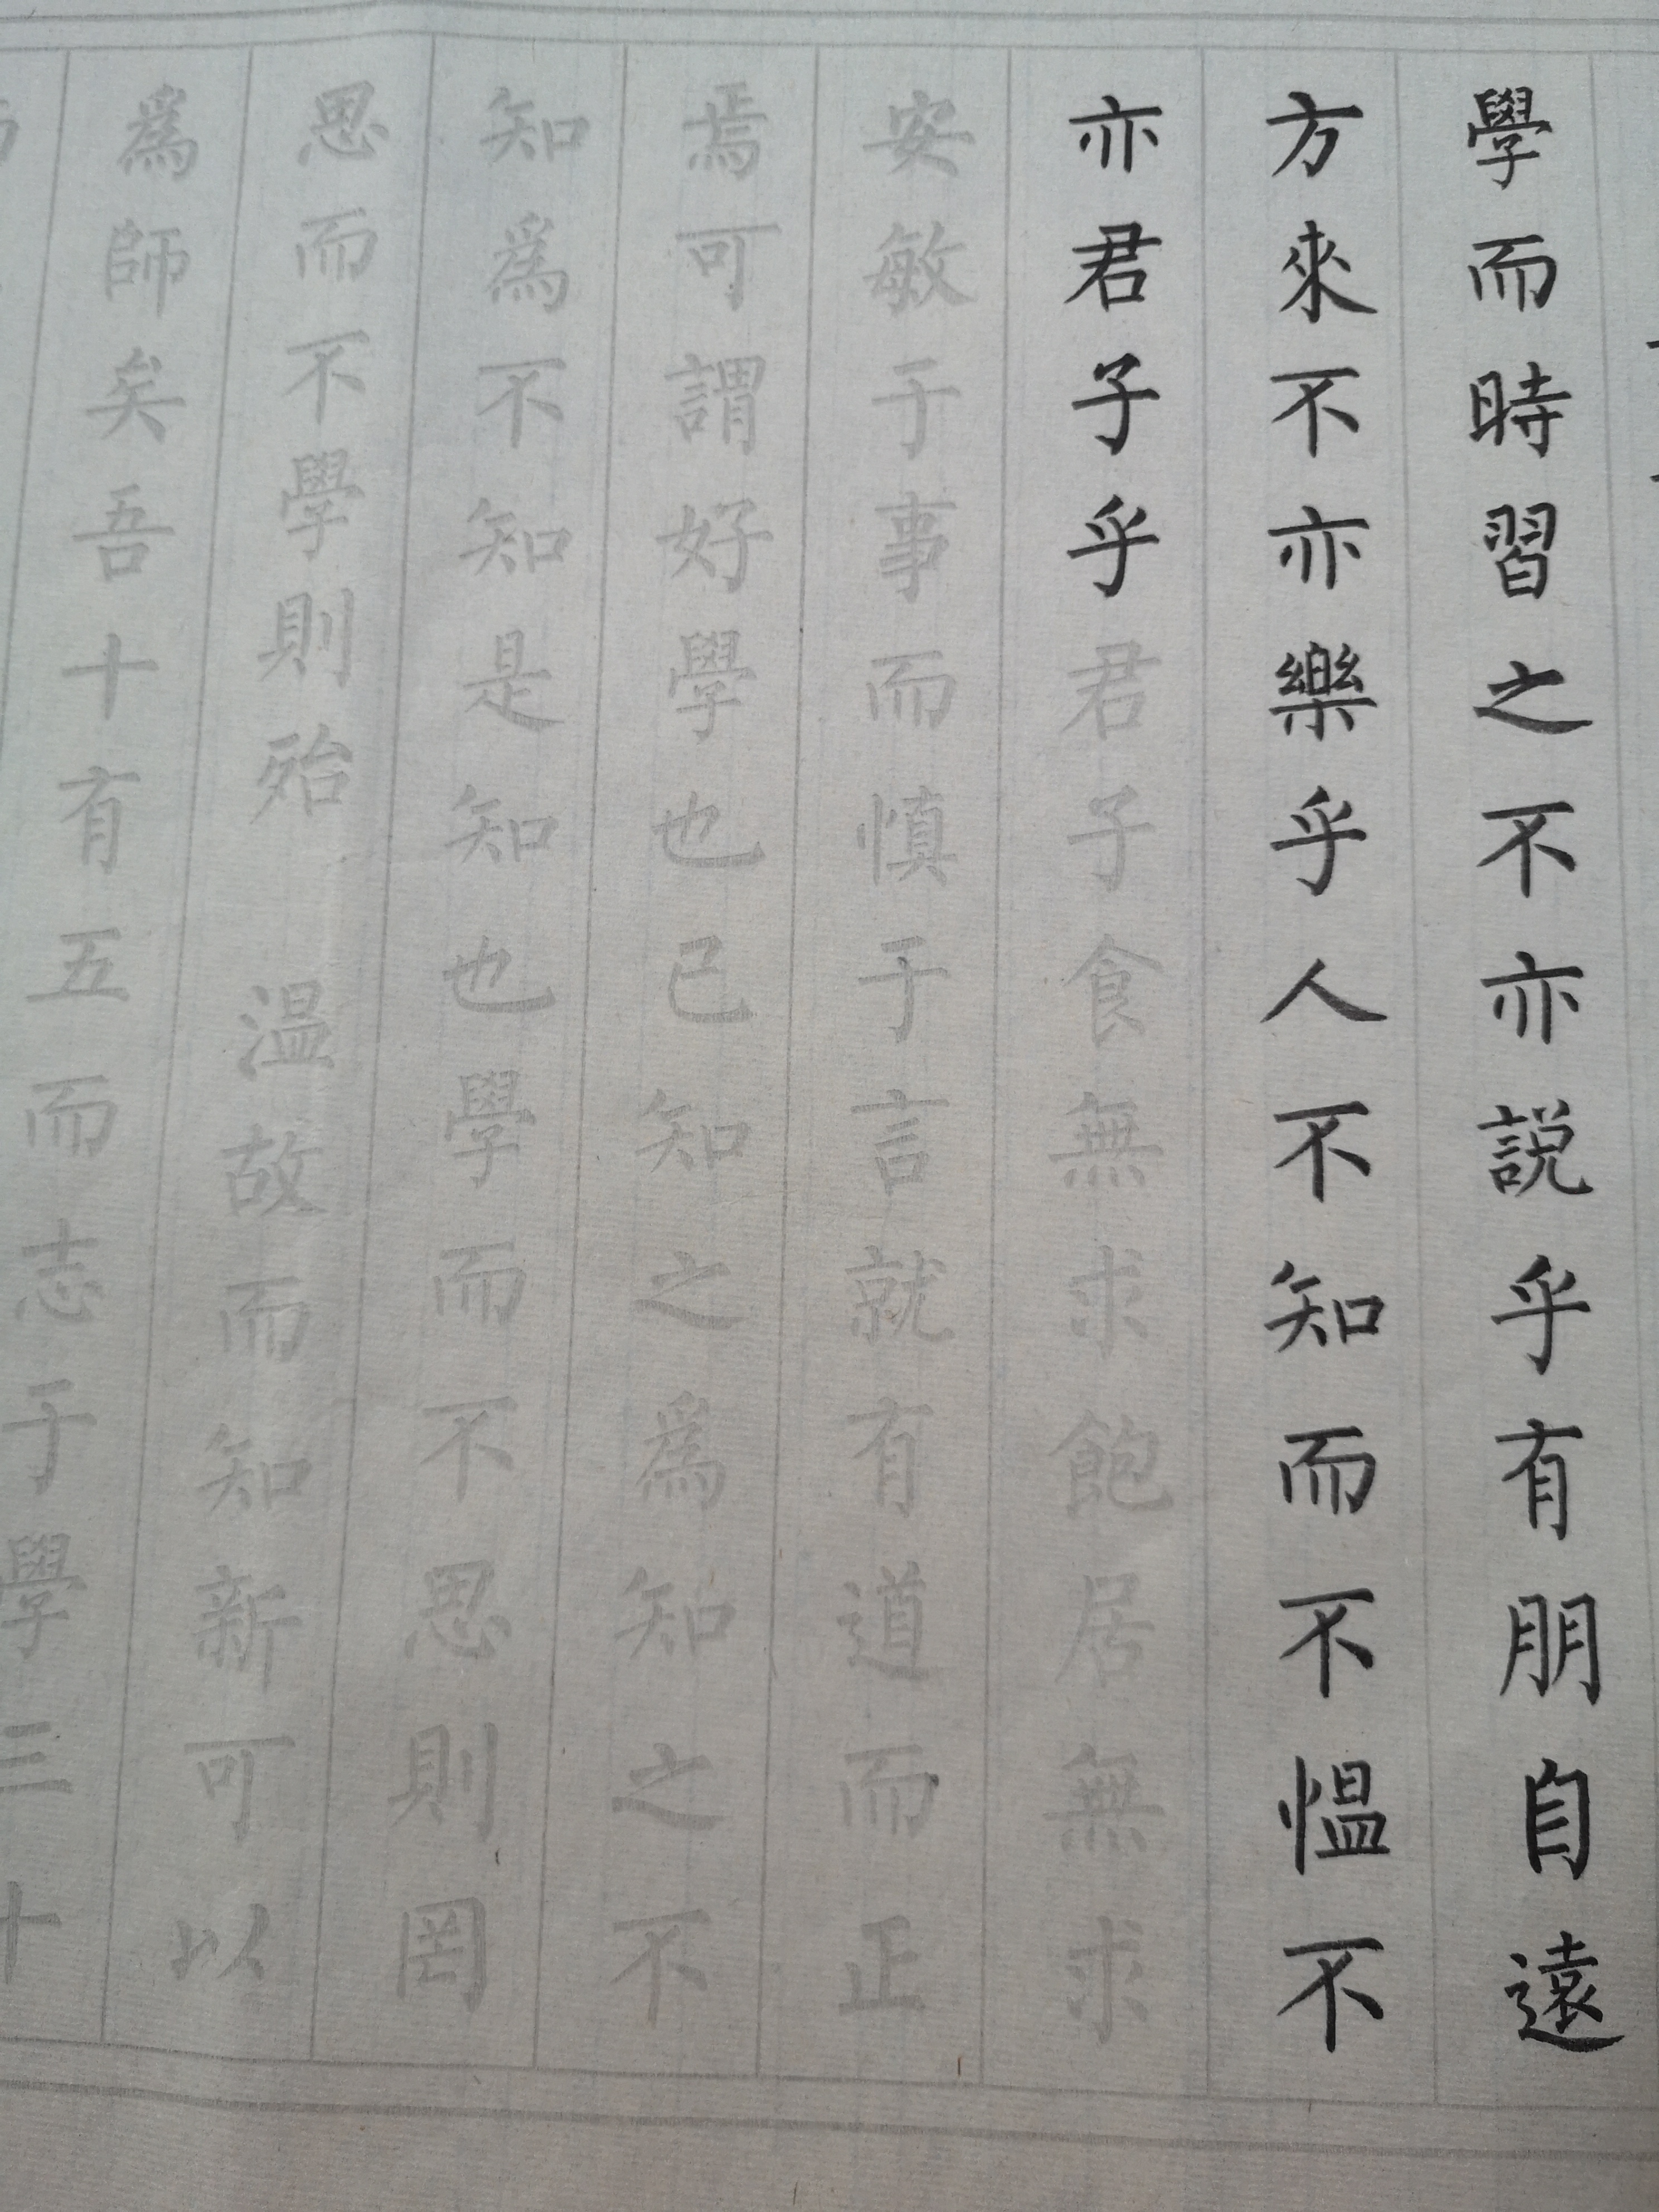 學而時習之不亦説乎有朋自遠
方來不亦樂乎人不知而不愠不
亦君子乎君子食無求飽居無求
安敏于事而慎于言就有道而正
焉可謂好學也已知之爲知之不
知爲不知是知也學而不思則罔
思而不學則殆 温故而知新可以
爲師矣吾十有五而志于學三十